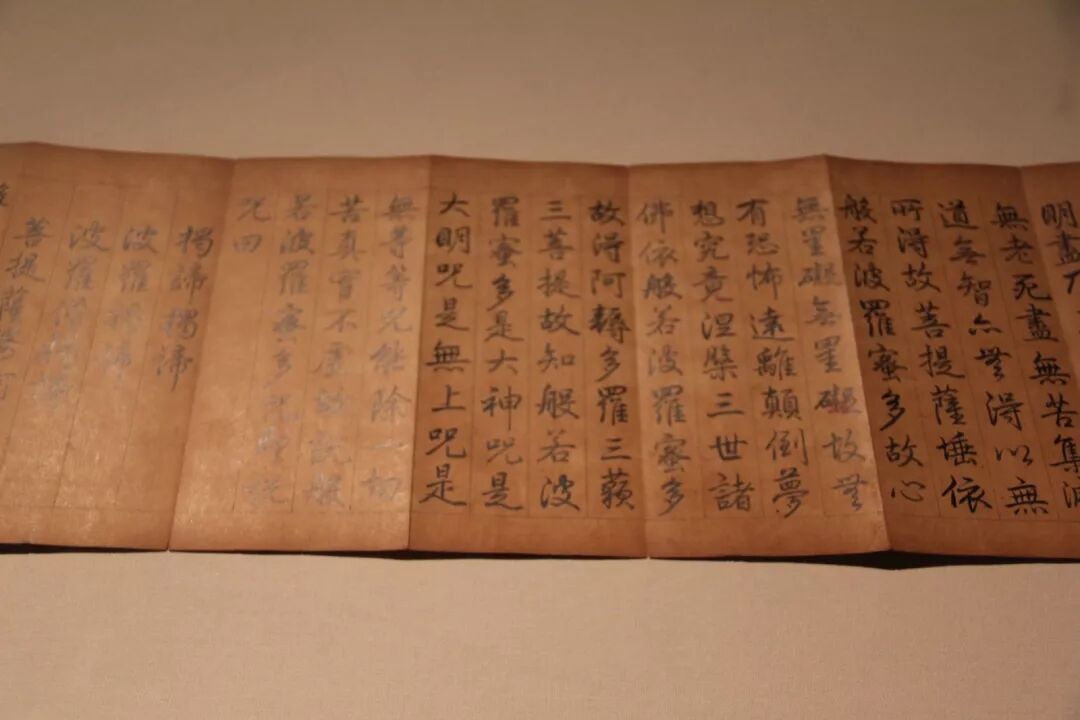 明盡
無老死盡無苦集滅
道無智亦無得以無
所得故菩提薩埵依
般若波羅蜜多故心
無罣礙無罣礙故無
有恐怖遠離顛倒夢
想究竟涅槃三世諸
佛依般若波羅蜜多
故得阿耨多羅三藐
三菩提故知般若波
羅蜜多是大神呪是
大明呪是無上呪是
無等等呪能除一切
苦真實不虛故說般
若波羅蜜多呪即說
呪曰
揭諦揭諦
波羅揭諦
波羅僧揭諦
菩提薩婆訶